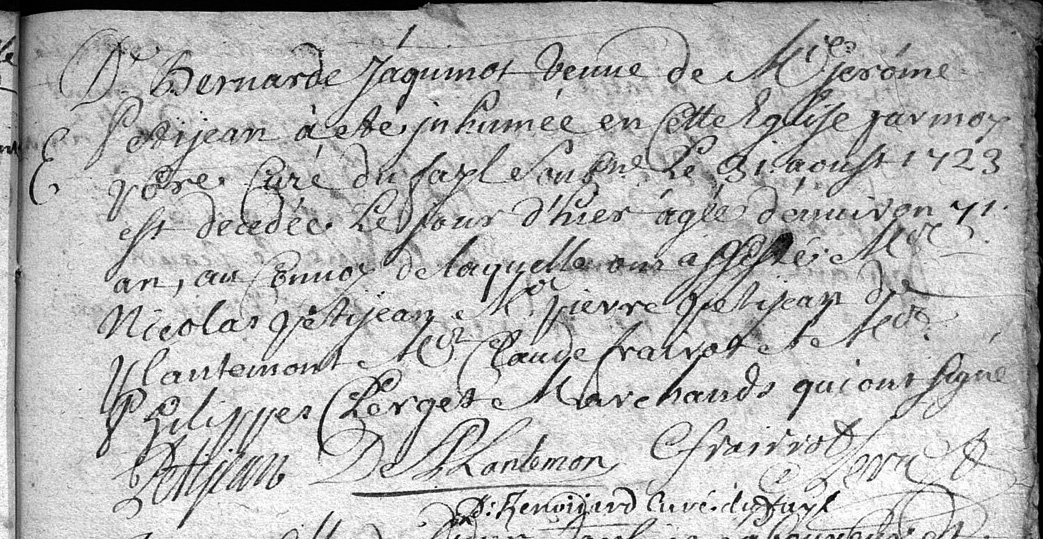 De Bernarde Jaquinot veuue de Mre jerôme
Petijean à eté jnhumée en Cette Eglise par moy
ptre Curé du fayl soubné Le 31. aoust 1723
est decedée Le jour d'hier agée d'enuiron 71.
an, au Conuoy de laquelle ont assisté Mre
Nicolas petijean Mr pierre petijean de
plantemont Mr Claude frairot et Mre
Philippes Clerget Marchands qui ont signé
Petijean De Plantemon C frairrot Clerget
Renoillard Curé du fayl